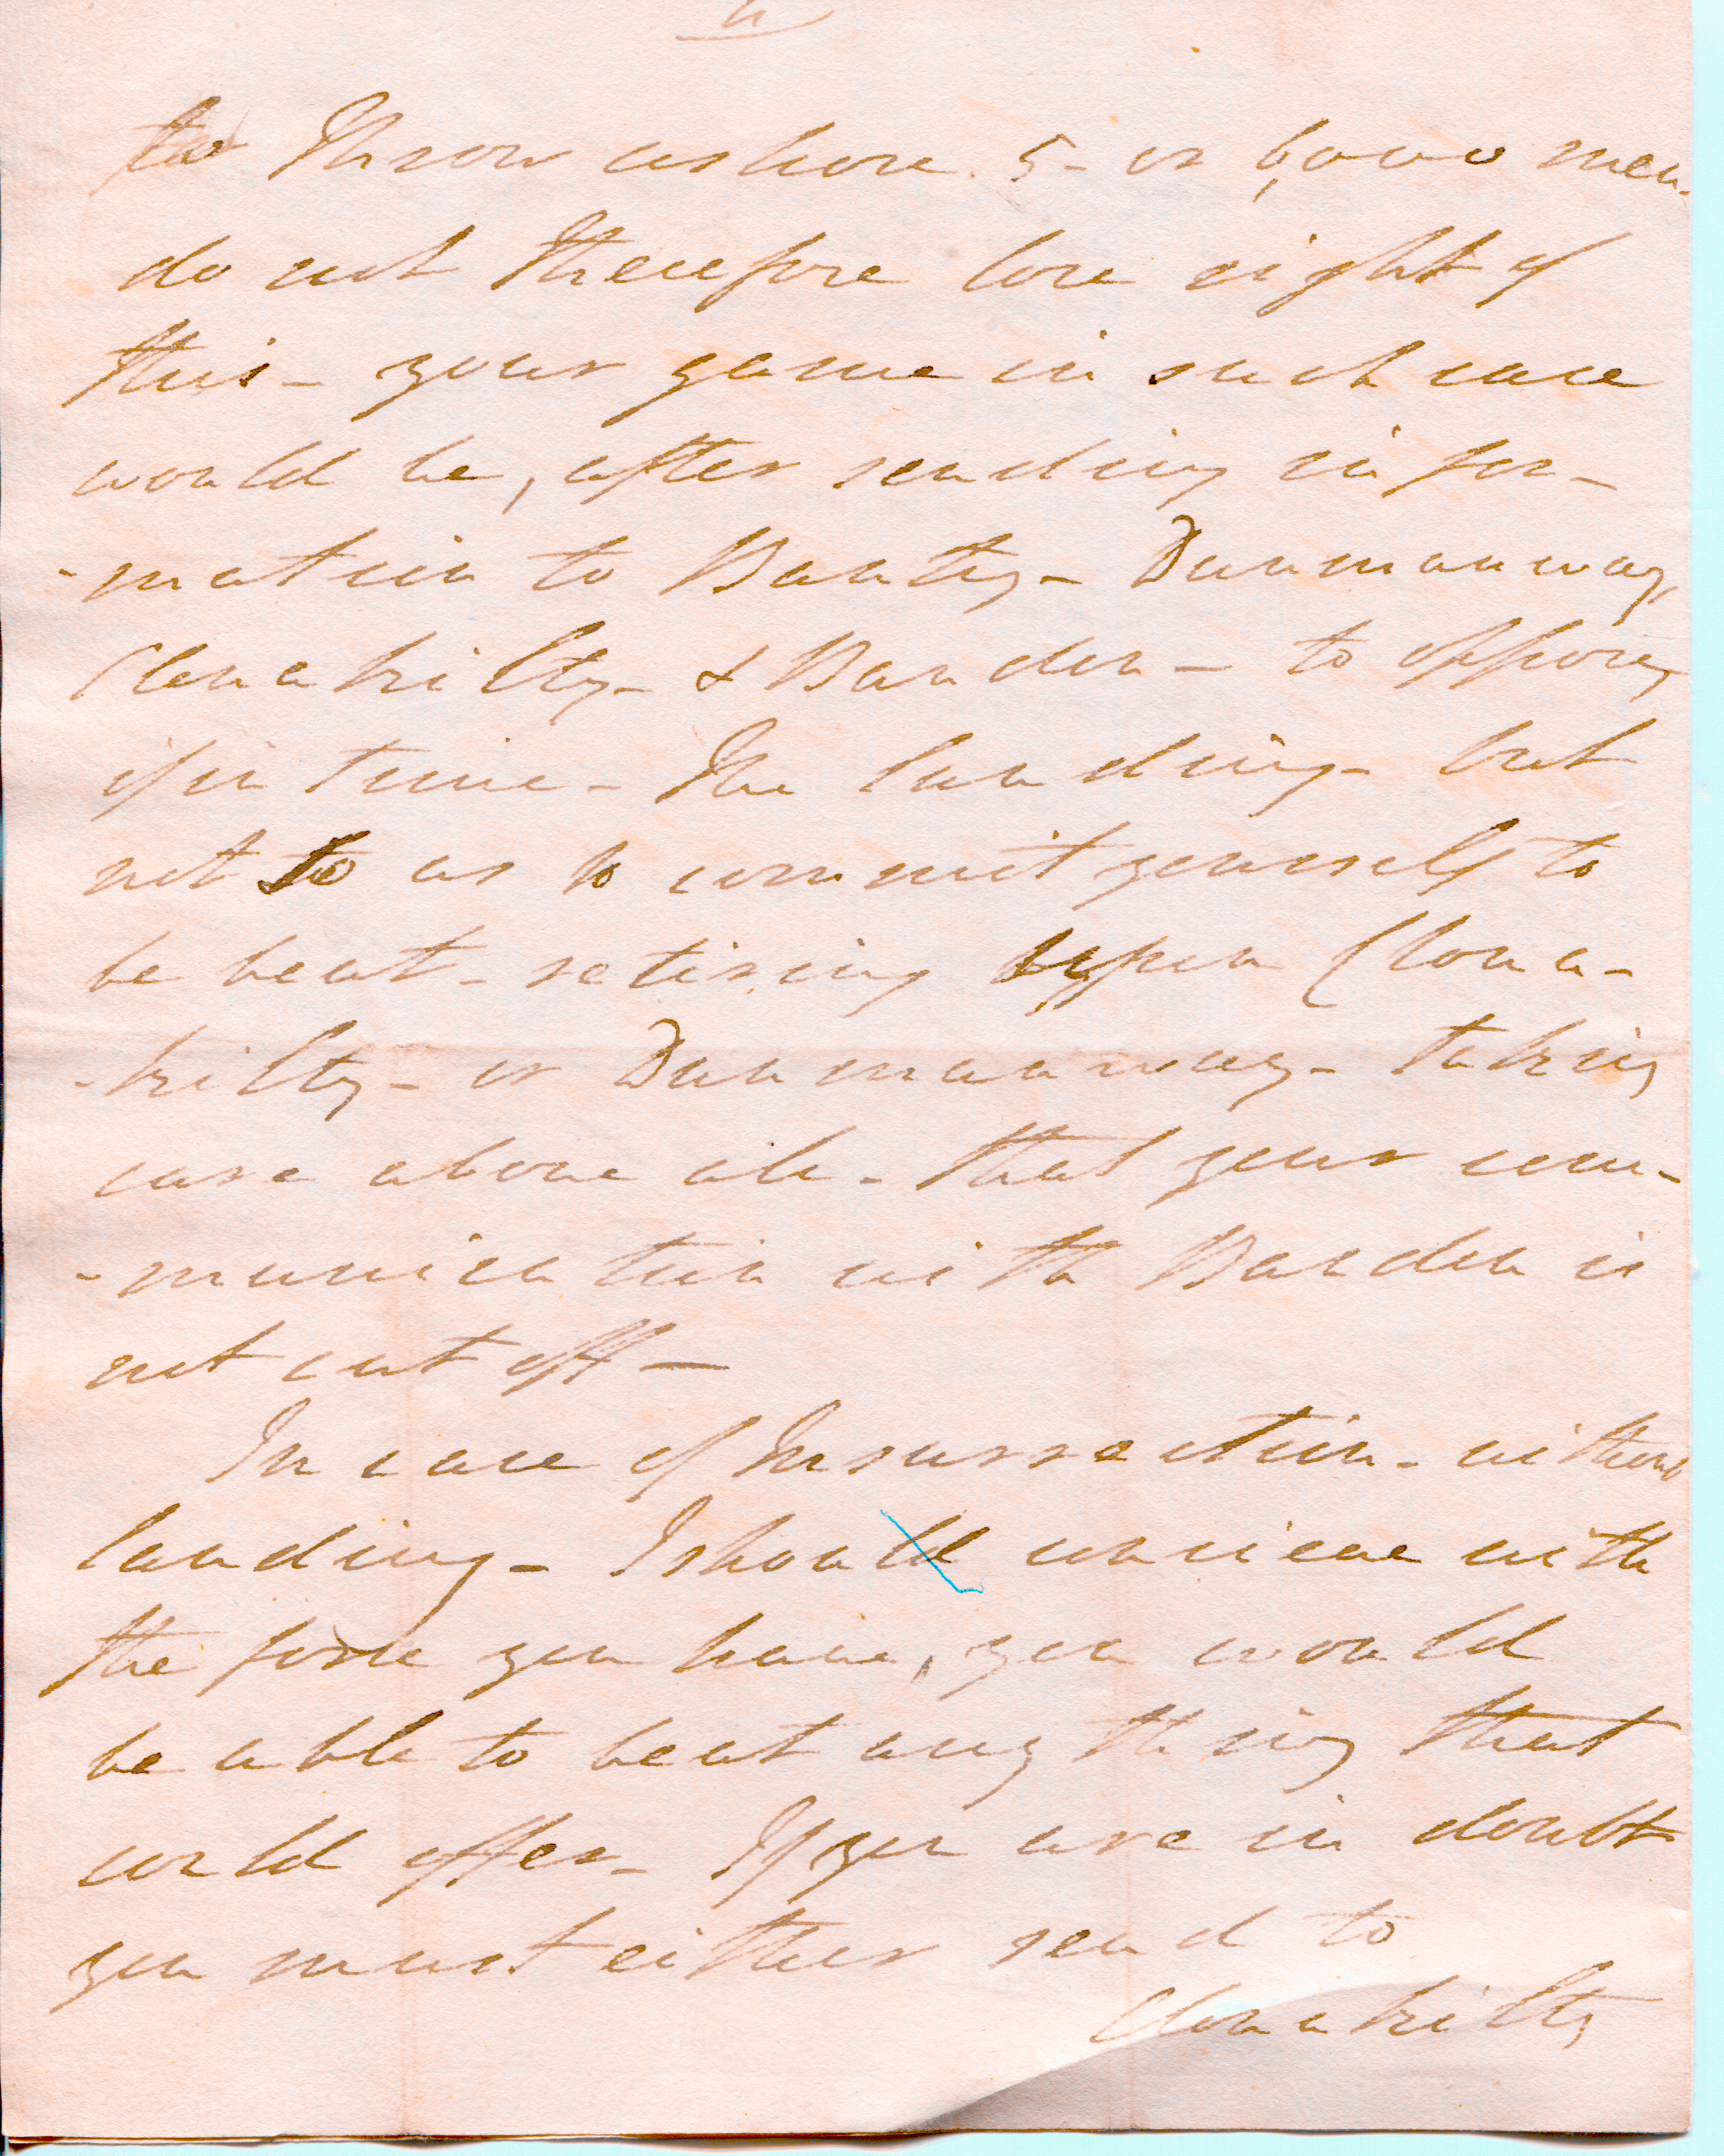 to throw ashore 5- or 6,000 men-
do not therefore lose sight of
this- your game in such case
would be, after sending infor-
-mation to Bantry- Dunmanway,
Clonakilty- & Bandon- to oppose,
if in time- the landing- but
not so as to commit yourself to
be beat- retiring upon Clona-
-kilty- or Dunmanway- taking
care above all- that your com-
-munication with Bandon is
not cut off-
In case of Insurrection- without
landing- I should conceive with
the force you have, you would
be able to beat any thing that
could offer- If you are in doubt
you must either send to
Clonakilty